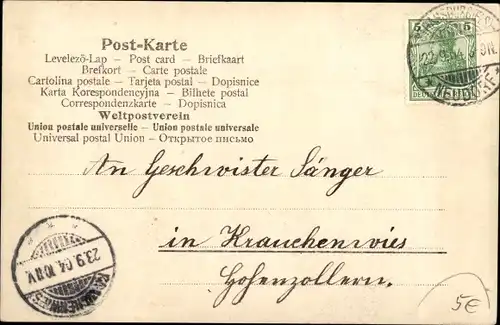 Post-Karte
Levelező-Lap — Post card — Briefkaart
Brefkort — Carte postale
Cartolina postale — Tarjeta postal — Dopisnice
Karta Korespondencyjna — Bilhete postal
Correspondenzkarte — Dopisnica
Weltpostverein
Union postale universelle — Union postale universale
Universal postal Union — Открытое письмо
5 5
22.9.04
NEUDORF
An Geschwister Sänger
in Krauchenwies
Hohenzollern.
23.9.04.10-11V.
KRAUCHENWIES
5€